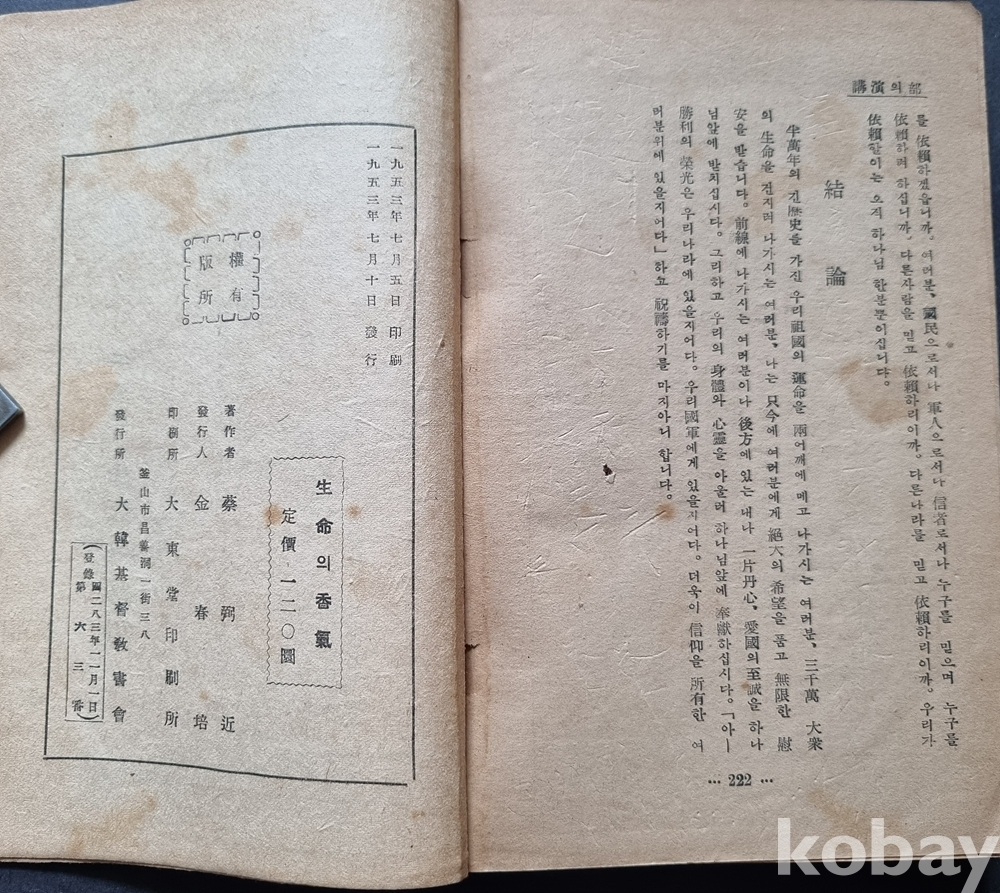 講演의部
를 依賴하겠읍니까. 여러분, 國民으로서나 軍人으로서나 信者로서나 누구를 믿으며 누구를
依賴하려 하십니까. 다른사람을 믿고 依賴하리이까. 다른나라를 믿고 依賴하리이까. 우리가
依賴할이는 오직 하나님 한분뿐이십니다.
結論
半萬年의 긴歷史를 가진 우리祖國의 運命을 兩어깨에 메고 나가시는 여러분, 三千萬 大衆
의 生命을 건지러 나가시는 여러분, 나는 只今에 여러분에게 絕大의 希望을 품고 無限한 慰
安을 받습니다. 前線에 나가시는 여러분이나 後方에 있는 내나 一片丹心, 愛國의至誠을 하나
님앞에 받치십시다. 그리하고 우리의 身體와 心靈을 아울러 하나님앞에 奉獻하십시다. 「아ー
勝利의 榮光은 우리나라에 있을지어다. 우리國軍에게 있을지어다. 더욱이 信仰을 所有한 여
러분위에 있을지어다」하고 祝禱하기를 마지아니 합니다.
… 222 …
一九五三年七月五日 印刷
一九五三年七月十日 發行
權有
版所
生命의香氣
定價 一二〇圜
著作者 蔡弼近
發行人 金春培
印刷所 大東堂印刷所
釜山市昌善洞一街三八
發行所 大韓基督敎書會
(登錄 四二八三年一一月一日
第六三番)
kobay